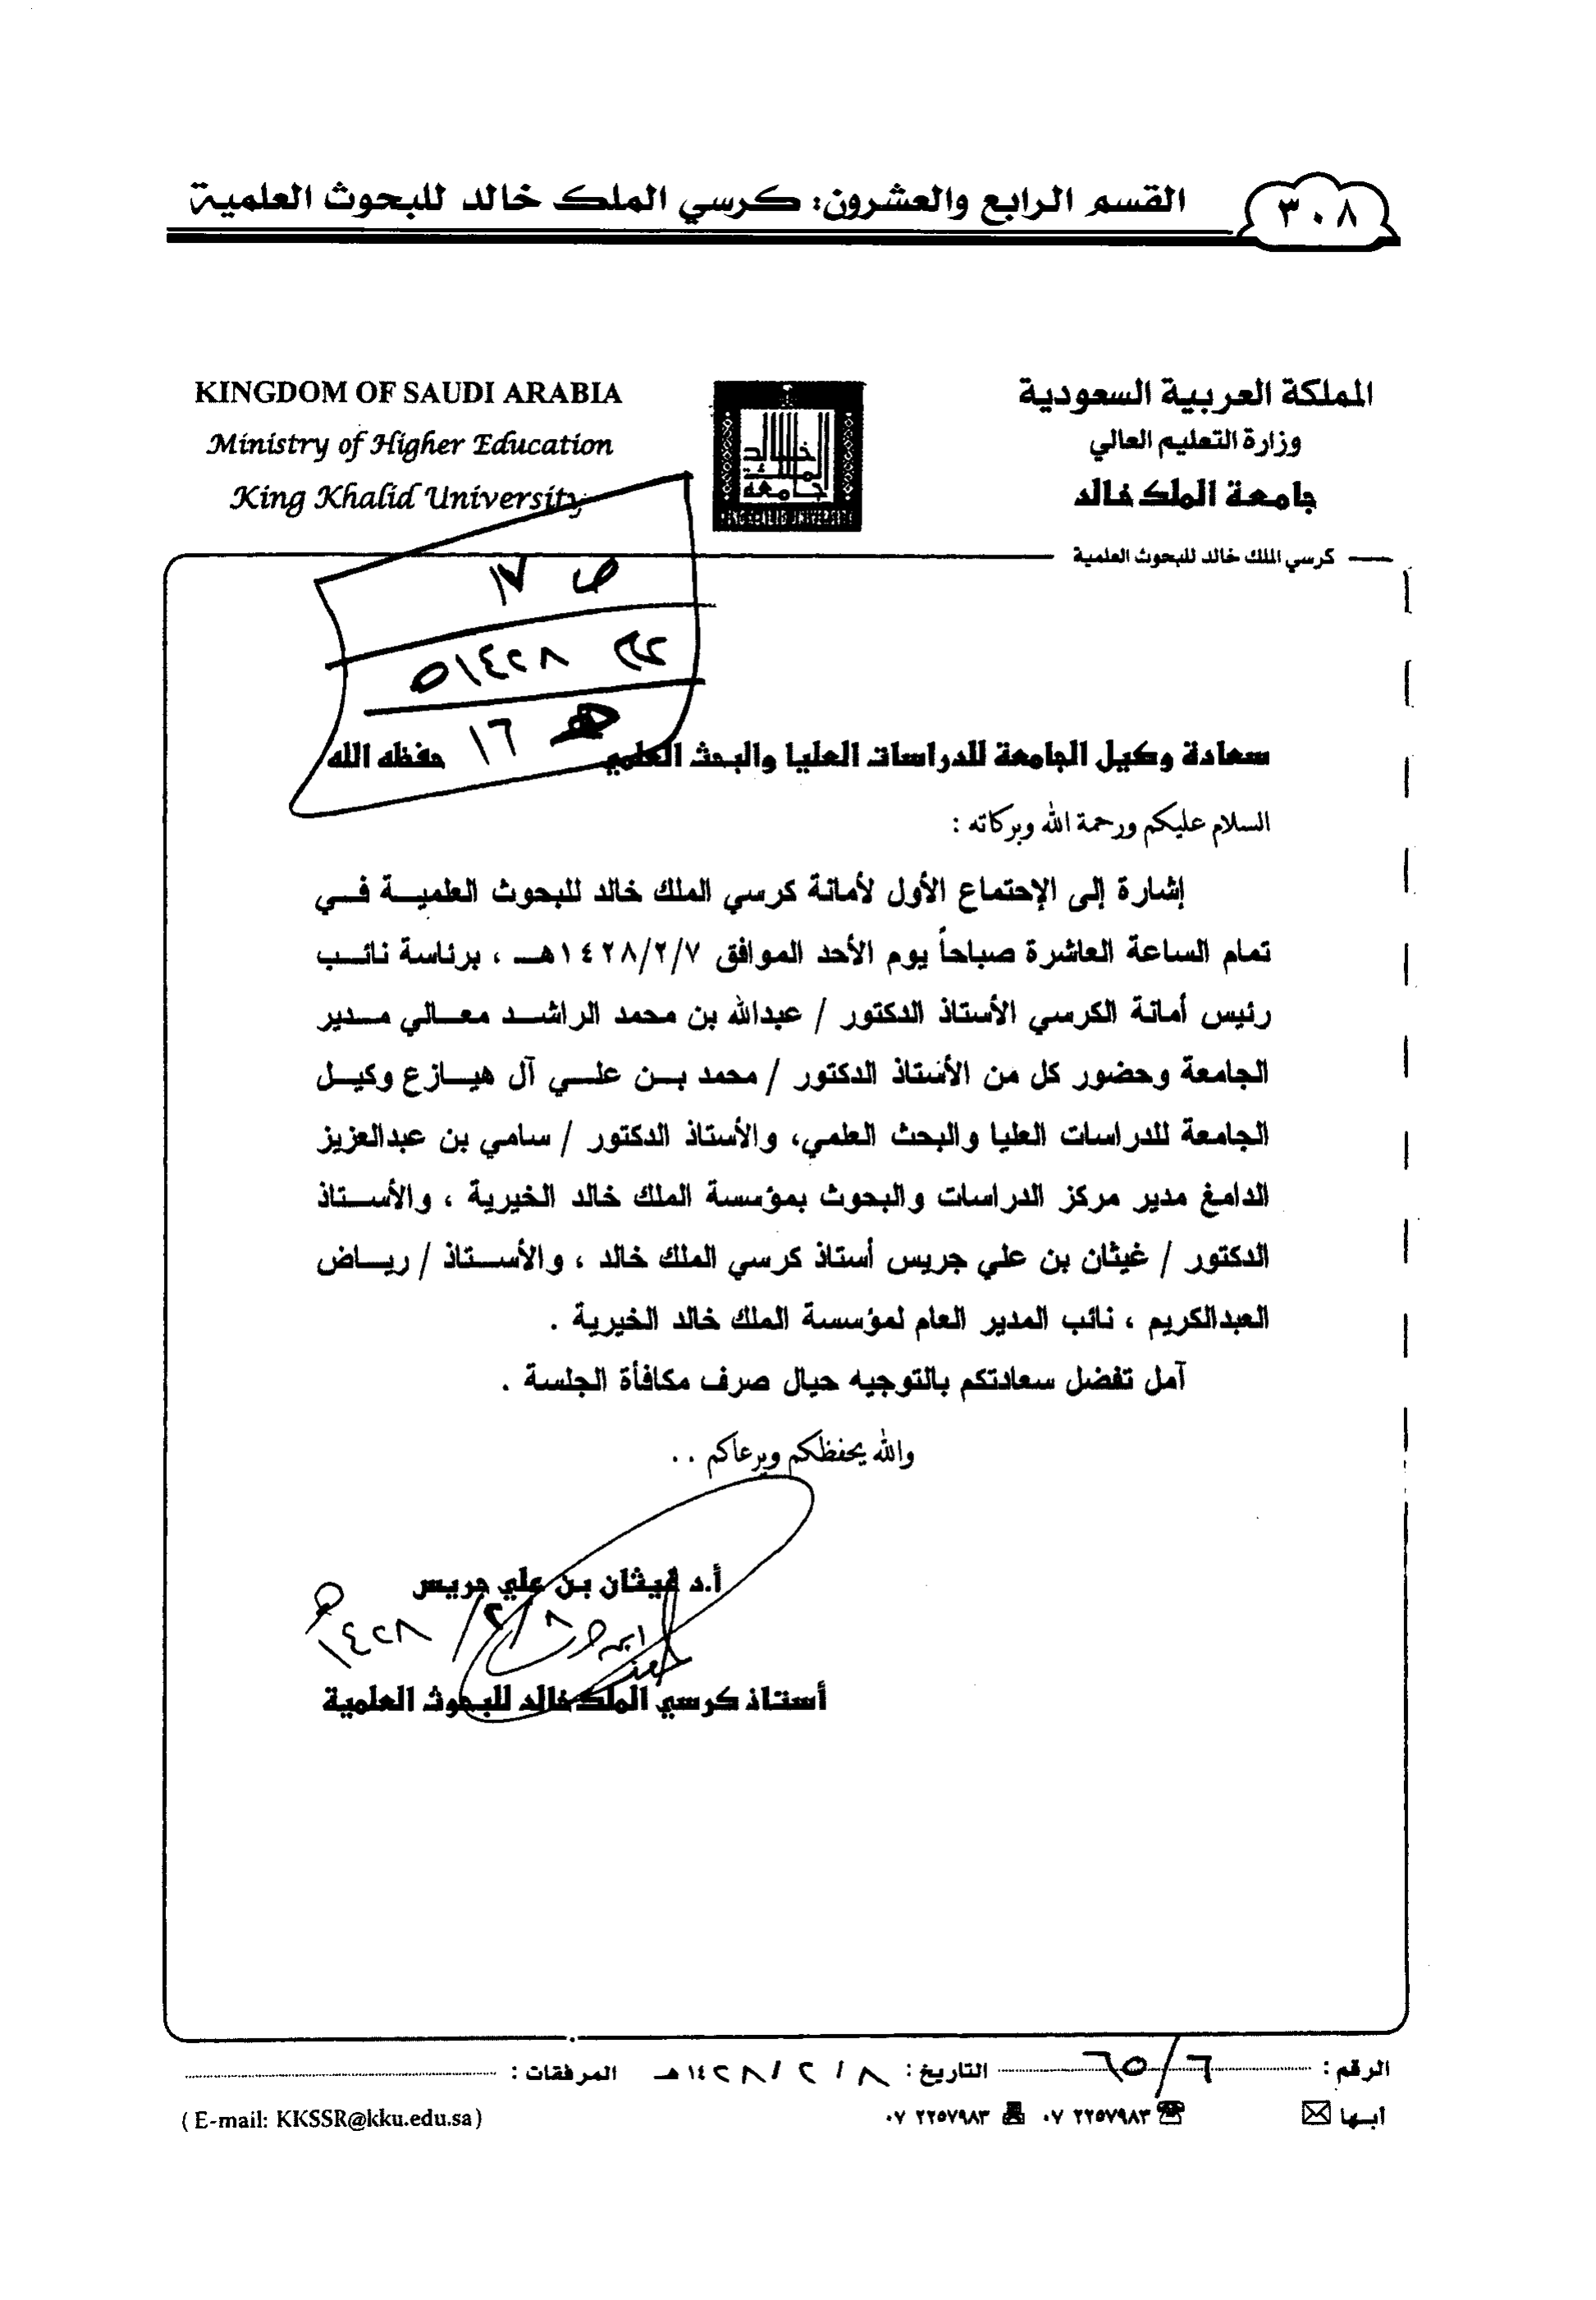 القسم الرابع والعشرون: كرسي الملك خالد للبحوث العلمية
٣٠٨
KINGDOM OF SAUDI ARABIA
Ministry of Higher Education
King Khalid University
المملكة العربية السعودية
وزارة التعليم العالي
جامعة الملك خالد
خالد
الملك
جامعة
KING KHALID UNIVERSITY
كرسي الملك خالد للبحوث العلمية
ص ١٧
١٤٢٨
١٦
سعادة وكيل الجامعة للدراسات العليا والبحث العلمي حفظه الله
السلام عليكم ورحمة الله وبركاته :
إشارة إلى الإحتماع الأول لأمانة كرسي الملك خالد للبحوث العلميـة فـي
تمام الساعة العاشرة صباحاً يوم الأحد الموافق ١٤٢٨/٢/٧هـ ، برئاسة نائـب
رئيس أمانة الكرسي الأستاذ الدكتور / عبدالله بن محمد الراشـد معـالي مـدير
الجامعة وحضور كل من الأستاذ الدكتور / محمد بـن علـي آل هيـازع وكيـل
الجامعة للدراسات العليا والبحث العلمي، والأستاذ الدكتور / سامي بن عبدالعزيز
الدامغ مدير مركز الدراسات والبحوث بمؤسسة الملك خالد الخيرية ، والأسـتاذ
الدكتور / غيثان بن علي جريس أستاذ كرسي الملك خالد ، والأسـتاذ / ريـاض
العبدالكريم ، نائب المدير العام لمؤسسة الملك خالد الخيرية .
آمل تفضل سعادتكم بالتوجيه حيال صرف مكافأة الجلسة .
والله يحفظكم ويرعاكم ..
أ.د غيثان بن علي جريس
٨/٢/١٤٢٨هـ
أستاذ كرسي الملك خالد للبحوث العلمية
الرقم : ٦/٦٥ التاريخ : ٨/٢/١٤٢٨هـ المرفقات :
أبـها ٠٧ ٢٢٥٧٩٨٣ ٠٧ ٢٢٥٧٩٨٣ ( E-mail: KKSSR@kku.edu.sa)